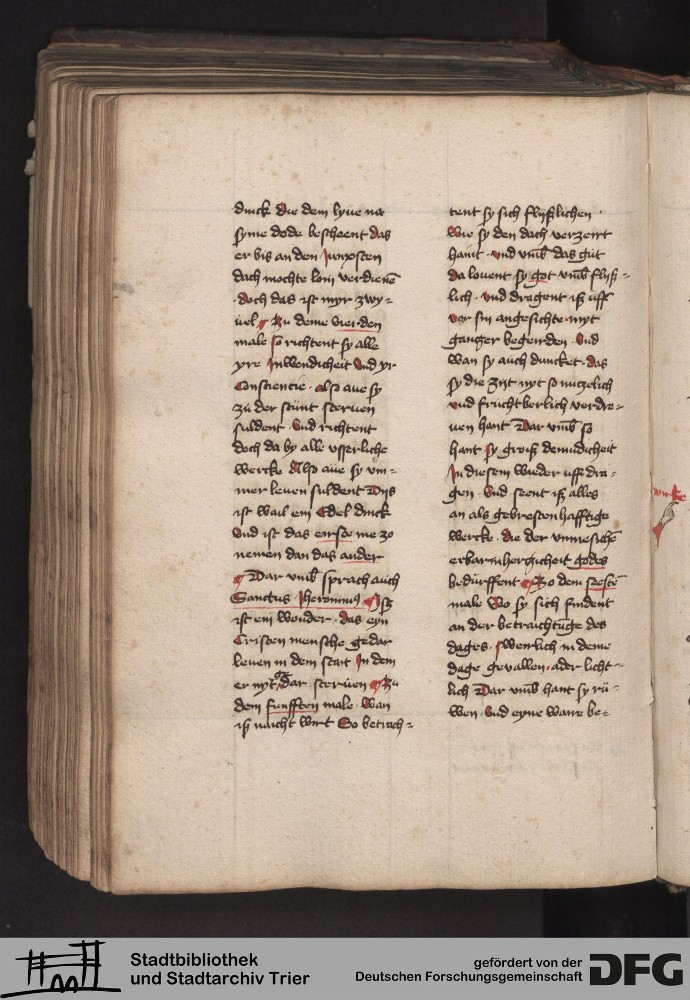 dinck die dem lyue na
syme dode bescheent das
er bis an den Junxsten
dach mochte loin verdienē
doch das ist myr zwy-
uel Zu deme vier den
male so richtent sy alle
yre Inwendicheit vnd yr
Consciencie · also aue sy
zu der stunt steruen
suldent · vnd richtent
doch da by alle vsserliche
wercke Also aue sy um-
mer leuen suldent Dijs
ist wail ein Edel dinck
vnd ist das eirste me zo
nemen dan das ander
Dar vmb sprach auch
Sanctus Iheronimus Is
ist ein wonder · das eyn
Cristen mensche gedar
leuen in dem stait In dem
er nyt dar steruen Zu
dem funfften male · wan
iß naicht wirt So betrach-
tent sy sich flyßlichen ·
wie sy den dach verzert
haint · vnd vmb das gut
da louent sy got vmb flyß-
lich · vnd dragent iß uff
vor sin angesichte myt
gantzer begerden · vnd
wan sy auch duncket · das
sy die Zijt nyt so nutzelich
vnd fruchtberlich verdre-
uen hant Dar vmb so
hant sy grois demudicheit
In diesem wieder uff dra-
gen · vnd seent iß alles
an als gebrestenhafftige
wercke · die der
erbarmhertzicheit godes
bedurffent Zo dem seestē
male wo sy sich findent
an der betraichtunge des
dages · swerlich in deme
dage gevallen · ader licht-
lich Dar vmb hant sy rü-
wen · vnd eyne ware be-
Stadtbibliothek
und Stadtarchiv Trier
gefördert von der
Deutschen Forschungsgemeinschaft
DFG